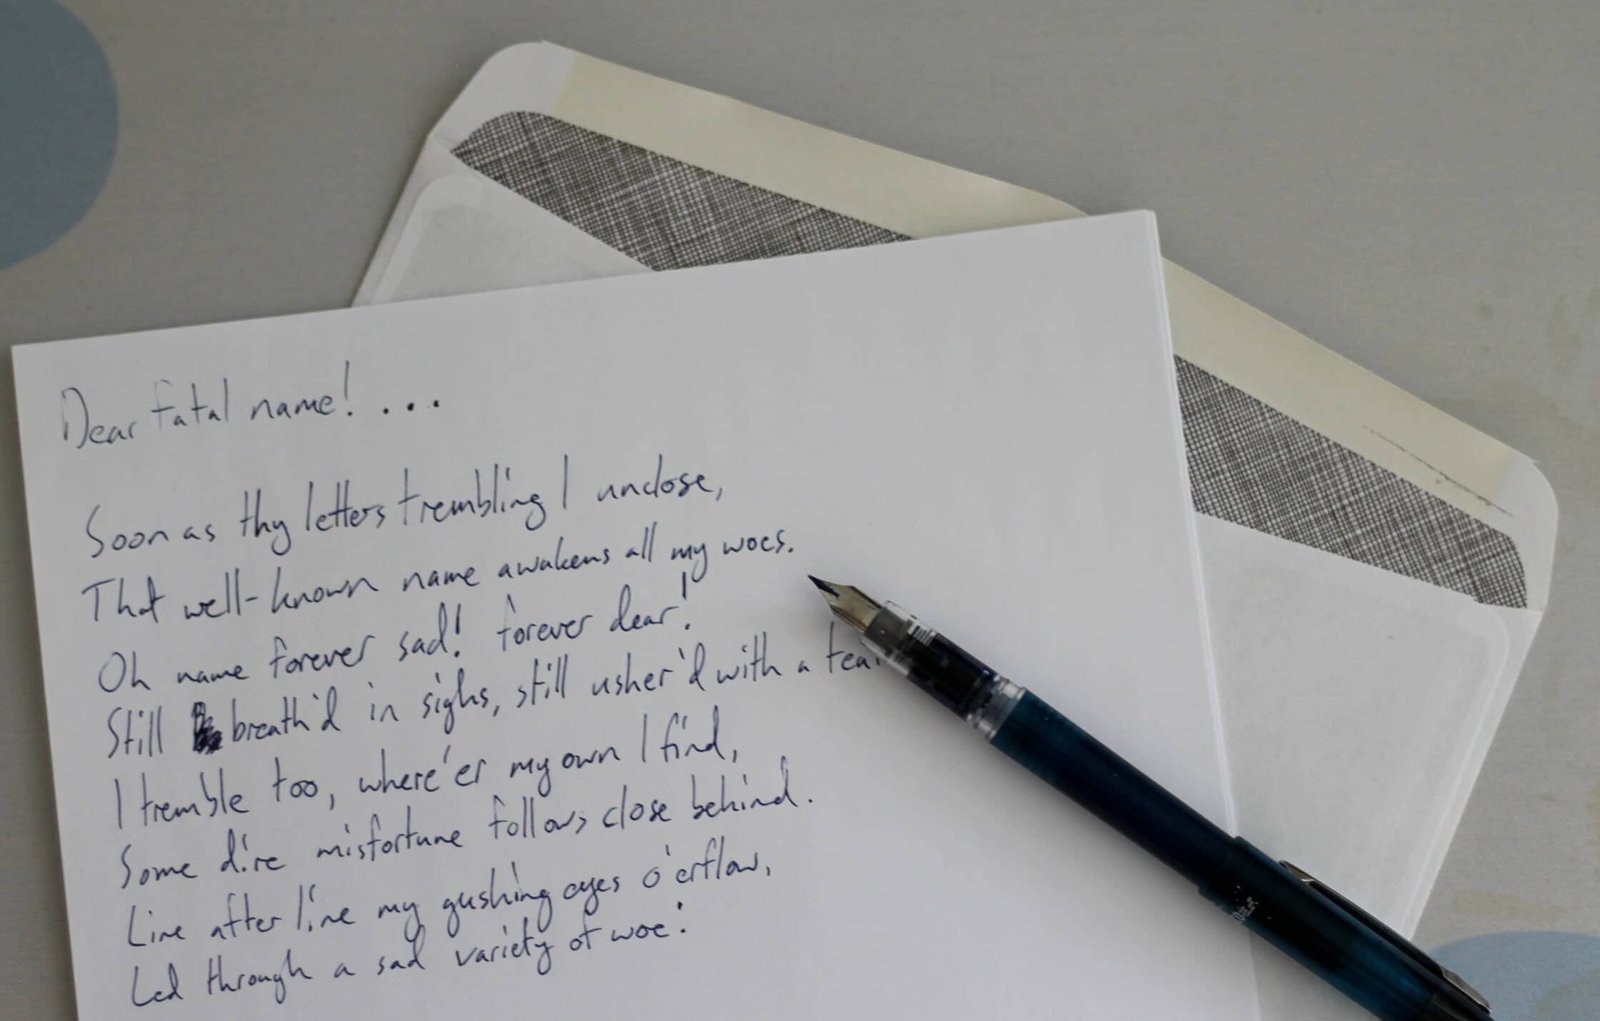 Dear fatal name! ...
Soon as thy letters trembling I unclose,
That well-known name awakens all my woes.
Oh name forever sad! forever dear!
Still breath'd in sighs, still usher'd with a tea
I tremble too, where'er my own I find,
Some dire misfortune follows close behind.
Line after line my gushing eyes o'erflow,
Led through a sad variety of woe: